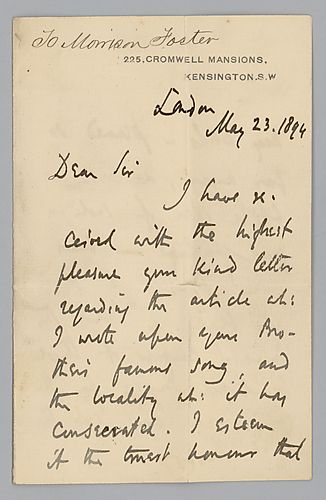 To Morrison Foster
225, CROMWELL MANSIONS,
KENSINGTON. S.W
London
May 23. 1894
Dear Sir
I have re-
ceived with the highest
pleasure your kind letter
regarding the article wh:
I wrote upon your Bro-
ther's famous song, and
the locality wh: it has
consecrated. I esteem
it the truest honour that